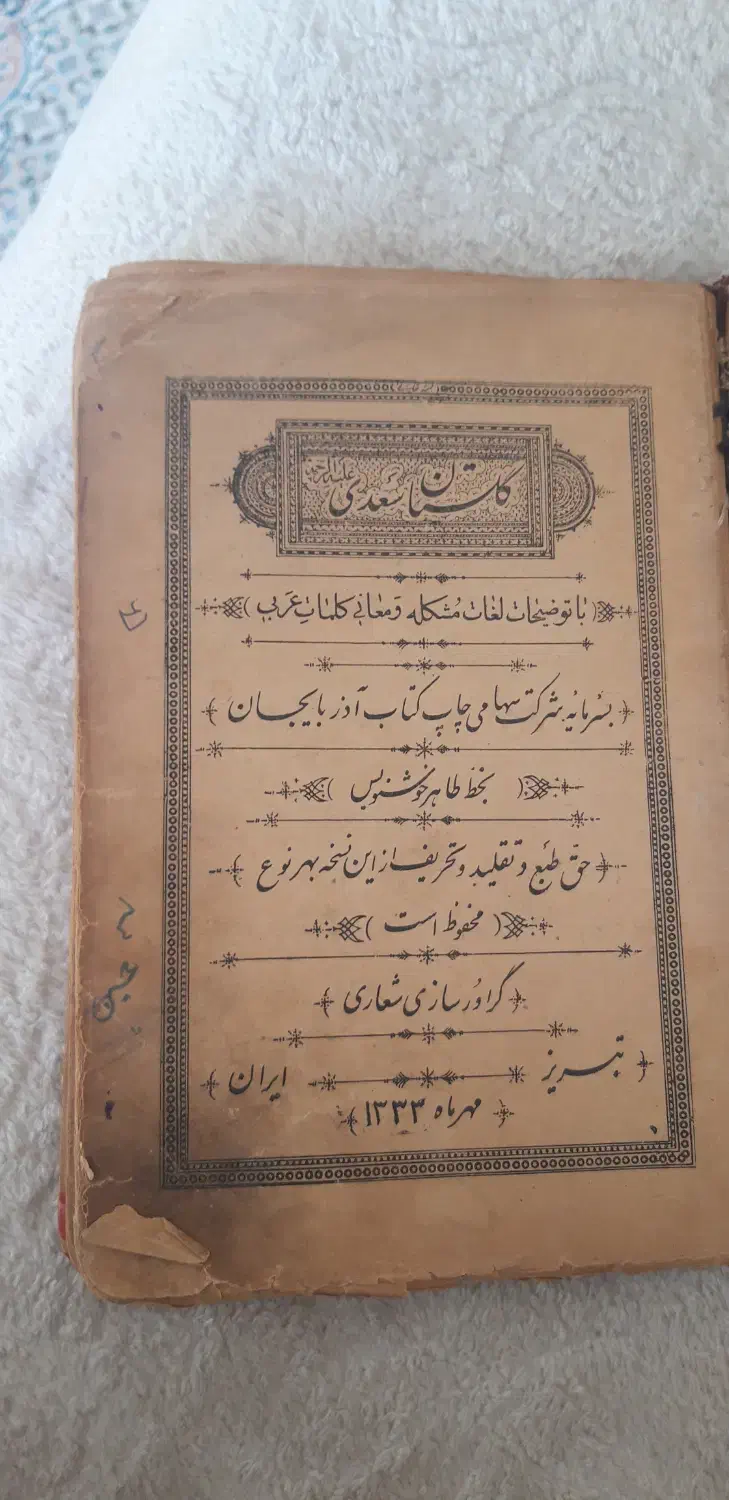 گلستان سعدی علیه الرحمه
(با توضیحات لغات مشکله و معانی کلمات عربی)
بسرمایه شرکت سهامی چاپ کتاب آذربایجان
(بخط طاهر خوشنویس)
حق طبع و تقلید و تحریف از این نسخه بهر نوع
(محفوظ است)
گراورسازی شعاری
تبریز ایران
مهرماه ۱۳۳۳